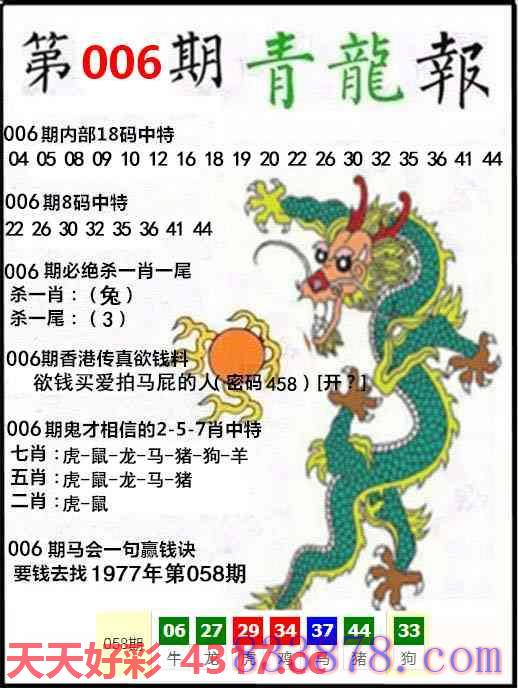 第006期青龍報
006期内部18码中特
04 05 08 09 10 12 16 18 19 20 22 26 30 32 35 36 41 44
006期8码中特
22 26 30 32 35 36 41 44
006 期必绝杀一肖一尾
杀一肖：（兔）
杀一尾：（3）
006期香港传真欲钱料
欲钱买爱拍马屁的人（密码458）[开？]
006期鬼才相信的2-5-7肖中特
七肖：虎-鼠-龙-马-猪-狗-羊
五肖：虎-鼠-龙-马-猪
二肖：虎-鼠
006期马会一句赢钱诀
要钱去找1977年第058期
058期 06 27 29 34 37 44 33
牛 龙 虎 鸡 马 猪 狗
天天好彩 4317.cc
838878.com